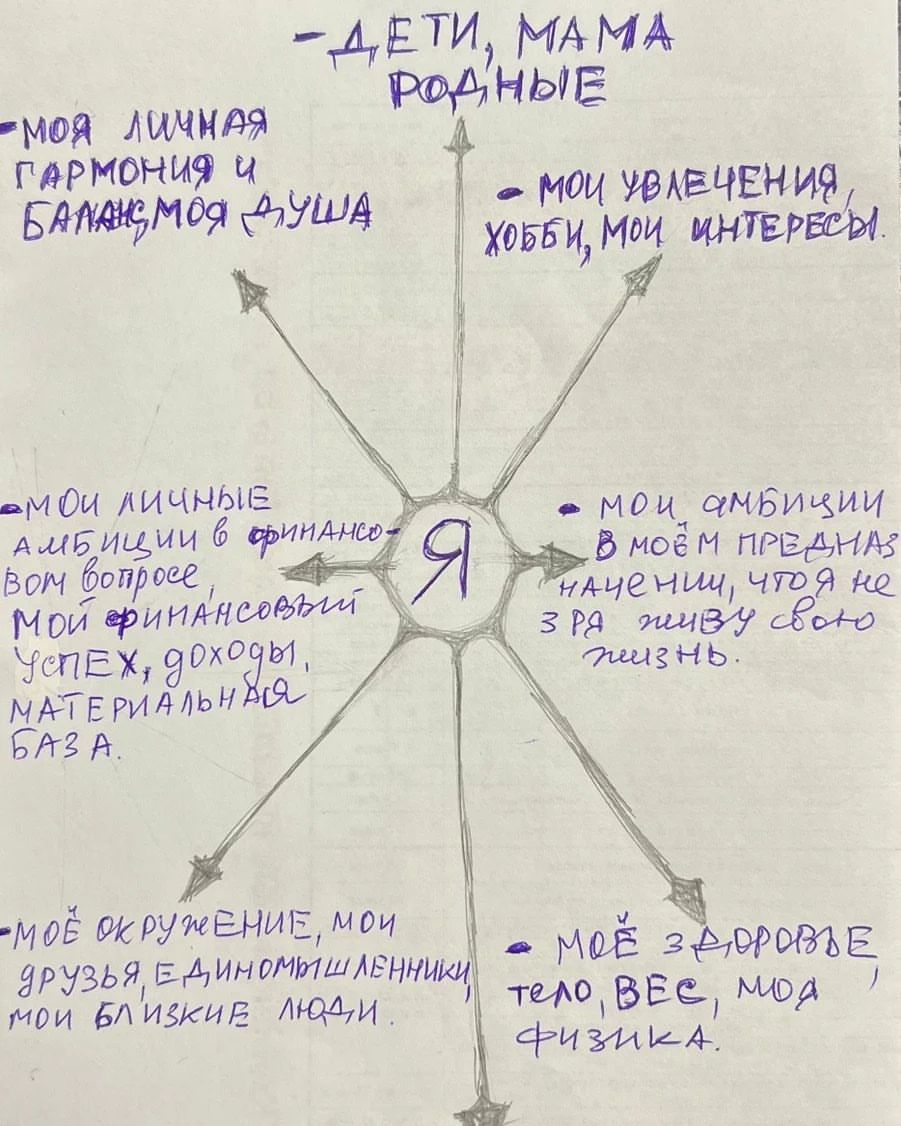 - ДЕТИ, МАМА
РОДНЫЕ
- МОЯ ЛИЧНАЯ
ГАРМОНИЯ И
БАЛАНС, МОЯ ДУША
- МОИ УВЛЕЧЕНИЯ,
ХОББИ, МОИ ИНТЕРЕСЫ.
- МОИ ЛИЧНЫЕ
АМБИЦИИ в ФИНАНСО-
ВОМ вопросе,
МОЙ ФИНАНСОВЫЙ
УСПЕХ, ДОХОДЫ,
МАТЕРИАЛЬНАЯ
БАЗА.
Я
- МОИ АМБИЦИИ
В МОЁМ ПРЕДНАЗ
НАЧЕНИИ, ЧТО Я НЕ
ЗРЯ ЖИВУ СВОЮ
ЖИЗНЬ.
- МОЁ ОКРУЖЕНИЕ, МОИ
ДРУЗЬЯ, ЕДИНОМЫШЛЕННИКИ,
МОИ БЛИЗКИЕ ЛЮДИ.
- МОЁ ЗДОРОВЬЕ,
ТЕЛО, ВЕС, МОЯ
ФИЗИКА.